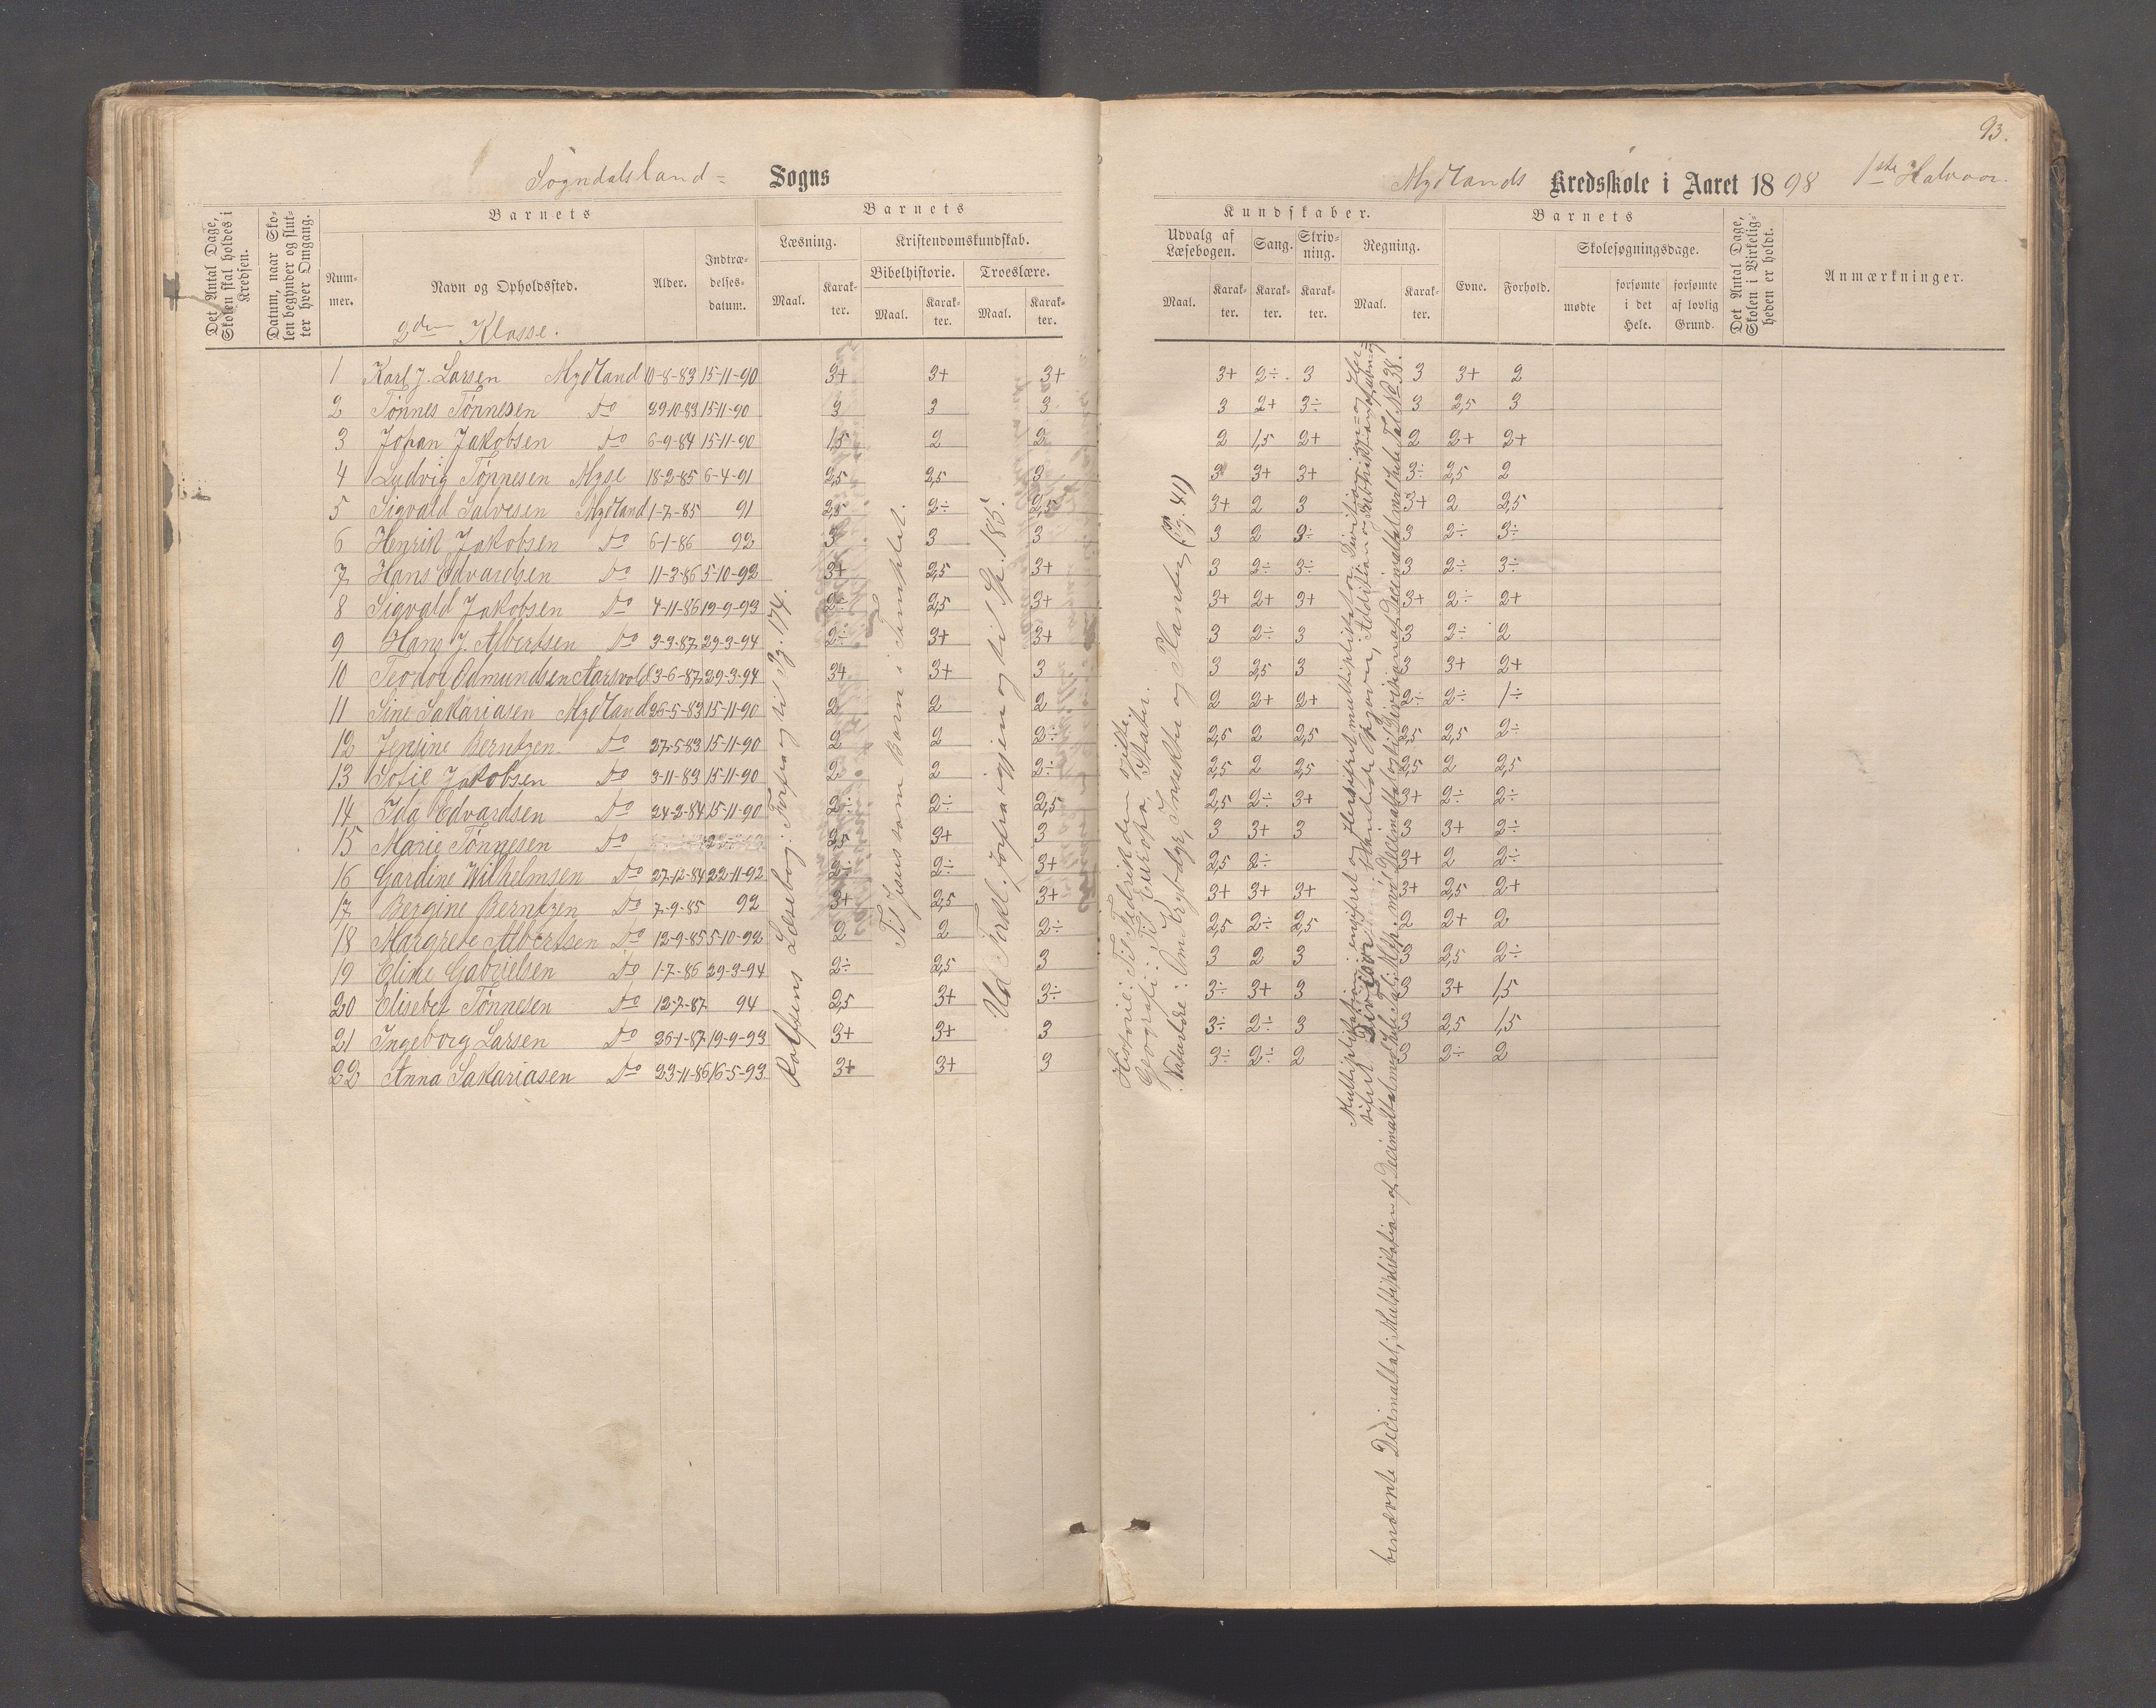 93.
Sogndalsland= Sogns
Mydlands Kredsskole i Aaret 1898 1ste Halvaar.
Det Antal Dage, Skolen skal holdes i Kredsen.
Datum, naar Skolen begynder og slutter hver Omgang.
Barnets
Nummer.
Navn og Opholdssted.
Alder.
Indtrædelsesdatum.
Barnets
Læsning.
Maal.
Karakter.
Kristendomskundskab.
Bibelhistorie.
Maal.
Karakter.
Troeslære.
Maal.
Karakter.
Kundskaber.
Udvalg af Læsebogen.
Maal.
Karakter.
Sang.
Karakter.
Skrivning.
Karakter.
Regning.
Maal.
Karakter.
Barnets
Evne.
Forhold.
Skolesøgningsdage.
mødte
forsømte i det Hele.
forsømte af lovlig Grund.
Det Antal Dage, Skolen i Virkeligheden er holdt.
Anmærkninger.
2den Klasse.
1 Karl J. Larsen Mydland 10-8-83 15-11-90 3+ 3+ 3+ 3+ 2÷ 3 3 3+ 2
2 Tönnes Tönnesen Do 29-10-83 15-11-90 3 3 3 3 2+ 3÷ 3 2,5 3
3 Johan Jakobsen Do 6-9-84 15-11-90 1,5 2 2 2 1,5 2+ 2 2+ 2+
4 Ludvig Tönnesen Myse 18-2-85 6-4-91 2,5 2,5 3 3 3+ 3+ 3÷ 2,5 2
5 Sigvald Salvesen Mydland 1-7-85 91 2,5 2÷ 2,5 3+ 2 3 3+ 2 2,5
6 Henrik Jakobsen Do 6-1-86 92 3 3 3 3 2 3÷ 3 2÷ 3÷
7 Hans Edvardsen Do 11-3-86 5-10-92 3+ 2,5 3+ 3 2÷ 3÷ 3 2÷ 3÷
8 Sigvald Jakobsen Do 4-11-86 19-9-93 2÷ 2,5 3+ 3+ 2+ 3+ 3+ 2÷ 2+
9 Hans J. Albertsen Do 3-3-87 29-3-94 2÷ 3+ 3+ 3 2÷ 3 3 2÷ 2
10 Teodor Odmundsen Aarsvold 3-6-87 29-3-94 3+ 3+ 3 3 2,5 3 3 3+ 2+
11 Sine Sakariasen Mydland 26-5-83 15-11-90 2 2 2 2 2+ 2+ 2÷ 2÷ 1÷
12 Jensine Berntzen Do 27-5-83 15-11-90 2 2 2÷ 2,5 2 2,5 2,5 2,5 2÷
13 Sofie Jakobsen Do 3-11-83 15-11-90 2 2 2÷ 2,5 2 2,5 2,5 2 2,5
14 Ida Edvardsen Do 24-2-84 15-11-90 2÷ 2÷ 2,5 2,5 2÷ 3+ 3+ 2÷ 2÷
15 Marie Tönnesen Do 2,5 3+ 3 3 3+ 3 3 3+ 2÷
16 Gardine Wilhelmsen Do 27-12-84 22-11-92 2÷ 2÷ 3+ 2,5 2÷ 3+ 2 2÷
17 Bergine Berntzen Do 7-9-85 92 3+ 2,5 3+ 3+ 3+ 3+ 3+ 2,5 2+
18 Margrete Albertsen Do 12-9-85 5-10-92 2 2 2÷ 2,5 2÷ 2,5 2 2+ 2
19 Eline Gabrielsen Do 1-7-86 29-3-94 2÷ 2,5 3 3 2 3 3 2,5 2÷
20 Elisebet Tönnesen Do 12-7-87 94 2,5 3+ 3÷ 3÷ 3+ 3 3 3+ 1,5
21 Ingeborg Larsen Do 26-1-87 19-9-93 3+ 3+ 3 3÷ 2÷ 3 3 2,5 1,5
22 Anna Sakariasen Do 23-11-86 16-5-93 3+ 3+ 3 3÷ 2÷ 2 3 2÷ 2
Rolfsens Læsebog: Forfra og til Pg. 174.
Til Jesus som Barn i Templet.
Ud Forkl. forfra igjen og til Sp. 185.
Historie: Til Fredrik den
Geografi: Til Europa, Stater.
Naturlære: Om Krybdyr, Insekter og Planter, (Pg. 41)
Multiplikation: ensifret og flersifret multiplikator, Division: ensifret og flersifret Divisor blandede Opgaver, Addition og Subtraktion af ubenævnte og
benævnte Decimaltal, Multiplikation af Decimaltal med hele Tal, Mlp. med Decimaltal og til Division af Decimaltal med hele Tal No 38.